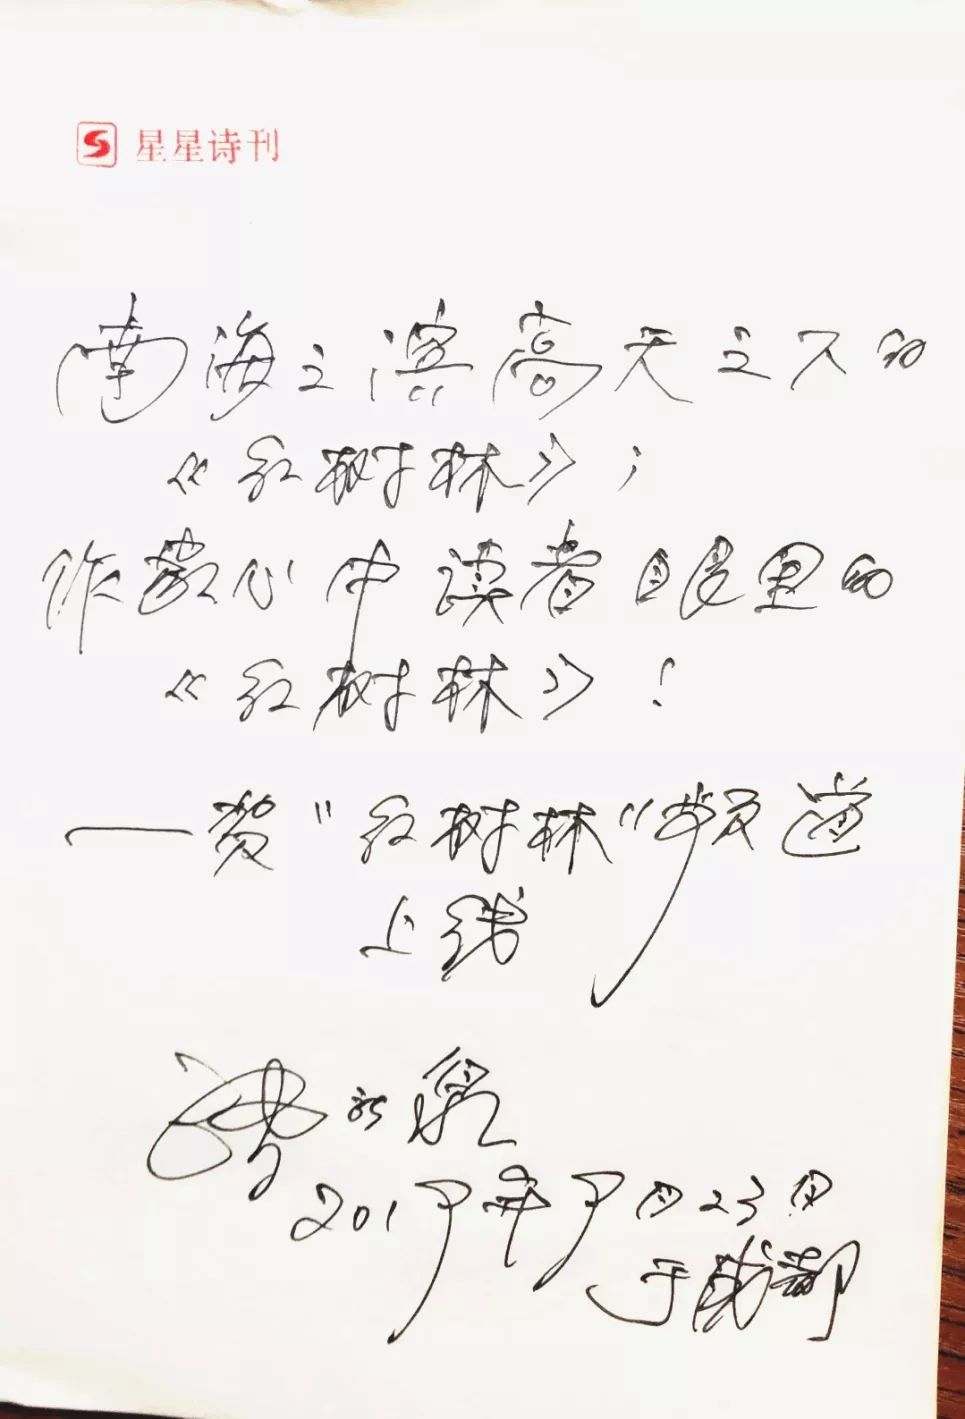 星星诗刊
南海之滨高天之下的
《红树林》；
作者心中读者眼里的
《红树林》！
——贺"红树林"频道
上线
张新泉
2019年9月23日
于成都